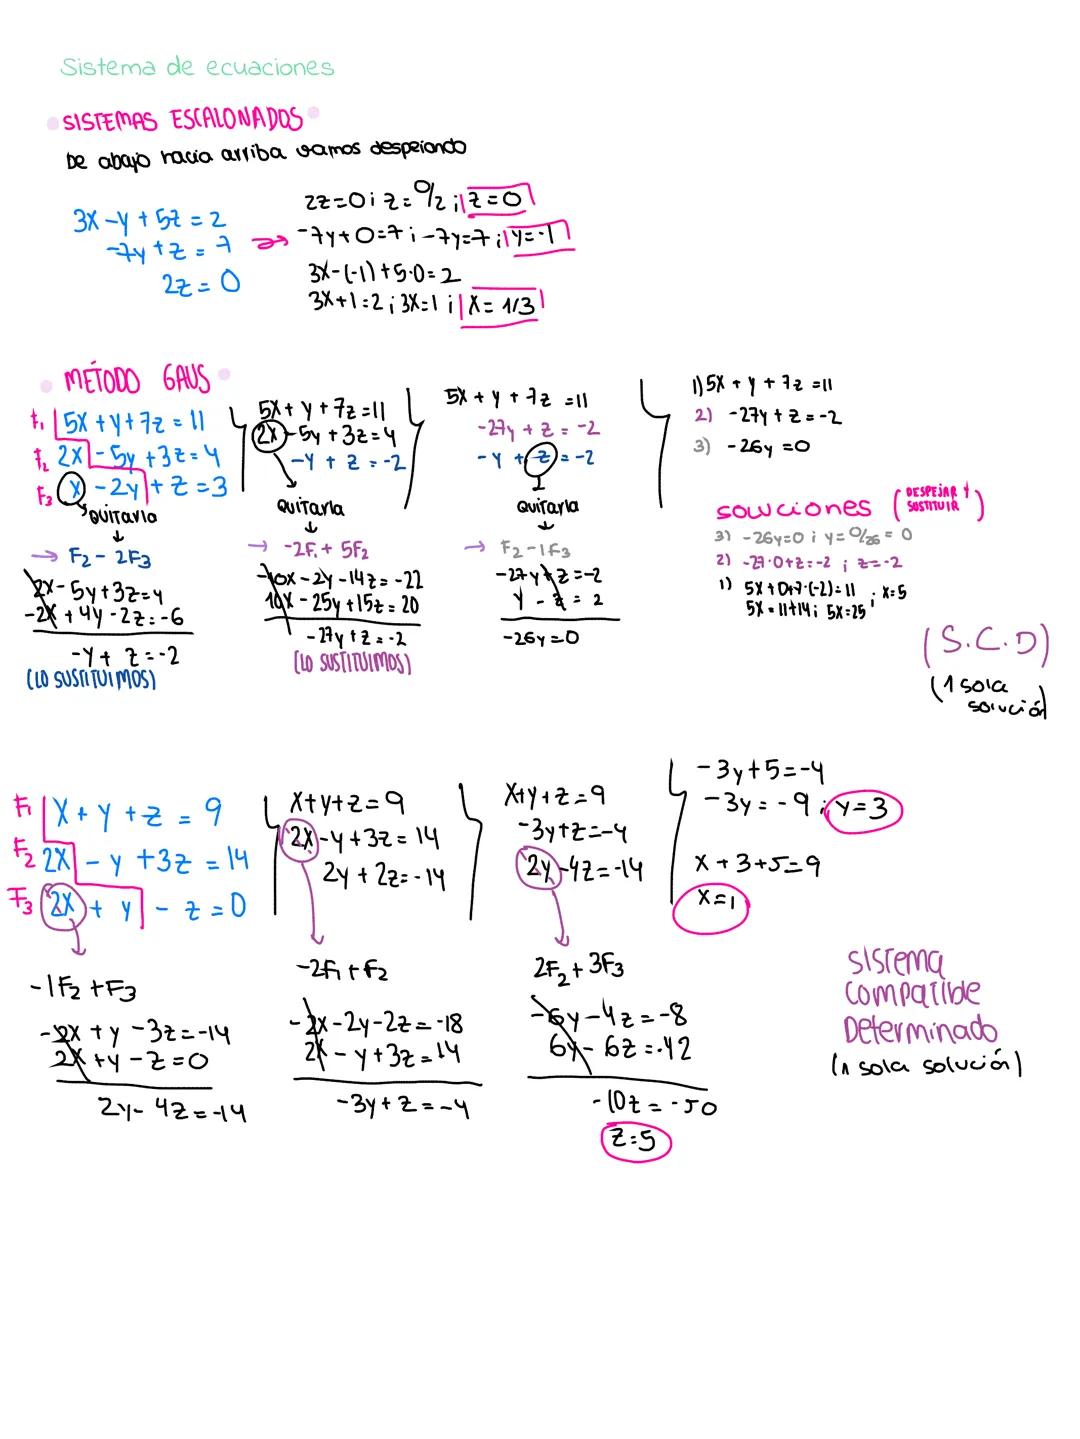 Sistema de ecuaciones
SISTEMAS ESCALONADOS
De abajo hacia arriba vamos despejando
3x - y + 5z = 2
-7y + z = 7
2z = 0
2z = 0 ; z = 0/2 ; z = 0
-7y + 0 = 7 ; -7y = 7 ; y = -1
3x - (-1) + 5·0 = 2
3x + 1 = 2 ; 3x = 1 ; x = 1/3
MÉTODO GAUS
F1 5x + y + 7z = 11
F2 2x - 5y + 3z = 4
F3 x - 2y + z = 3
Quitarla
→ F2 - 2F3
2x - 5y + 3z = 4
-2x + 4y - 2z = -6
-y + z = -2
(LO SUSTITUIMOS)
5x + y + 7z = 11
2x - 5y + 3z = 4
-y + z = -2
Quitarla
→ -2F1 + 5F2
-10x - 2y - 14z = -22
10x - 25y + 15z = 20
-27y + z = -2
(LO SUSTITUIMOS)
5x + y + 7z = 11
-27y + z = -2
-y + z = -2
Quitarla
→ F2 - 1F3
-27y + z = -2
y - z = 2
-26y = 0
1) 5x + y + 7z = 11
2) -27y + z = -2
3) -26y = 0
soluciones (DESPEJAR Y SUSTITUIR)
3) -26y = 0 ; y = 0/26 = 0
2) -27·0 + z = -2 ; z = -2
1) 5x + 0 + 7·(-2) = 11 ; x = 5
5x = 11 + 14 ; 5x = 25
(S.C.D)
(1 sola solución)
F1 x + y + z = 9
F2 2x - y + 3z = 14
F3 2x + y - z = 0
-1F2 + F3
-2x + y - 3z = -14
2x + y - z = 0
2y - 4z = -14
x + y + z = 9
2x - y + 3z = 14
2y + 2z = -14
-2F1 + F2
-2x - 2y - 2z = -18
2x - y + 3z = 14
-3y + z = -4
x + y + z = 9
-3y + z = -4
2y - 4z = -14
2F2 + 3F3
-6y - 4z = -8
6y - 6z = -42
-10z = -50
z = 5
-3y + 5 = -4
-3y = -9 ; y = 3
x + 3 + 5 = 9
x = 1
sistema
compatible
Determinado
(1 sola solución)